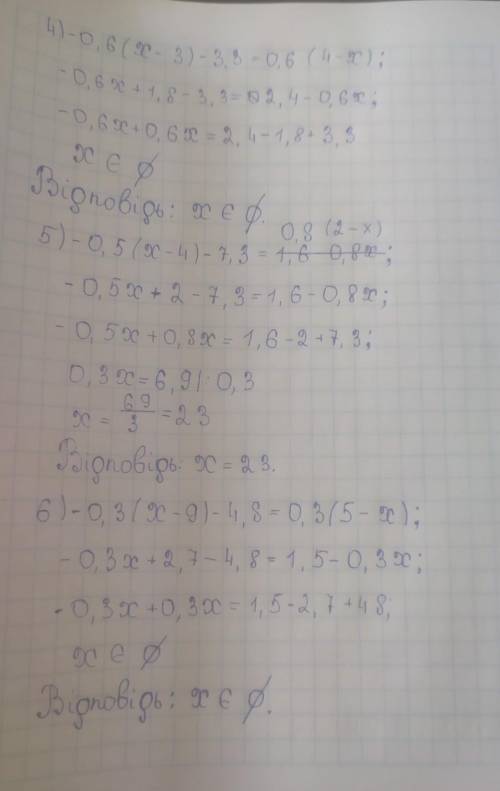 4) -0,6(x-3)-3,3=0,6 (4-x);
-0,6x+1,8-3,3=2,4-0,6x;
-0,6x+0,6x=2,4-1,8+3,3
x ∈ ∅
Відповідь: x ∈ ∅.
0,8 (2-x)
5) -0,5(x-4)-7,3= 1,6-0,8x;
-0,5x+2-7,3=1,6-0,8x;
-0,5x+0,8x=1,6-2+7,3;
0,3x=6,9|:0,3
x = 69/3 = 23
Відповідь: x=23.
6) -0,3(x-9)-4,8=0,3(5-x);
-0,3x+2,7-4,8=1,5-0,3x;
-0,3x+0,3x=1,5-2,7+48;
x ∈ ∅
Відповідь: x ∈ ∅.